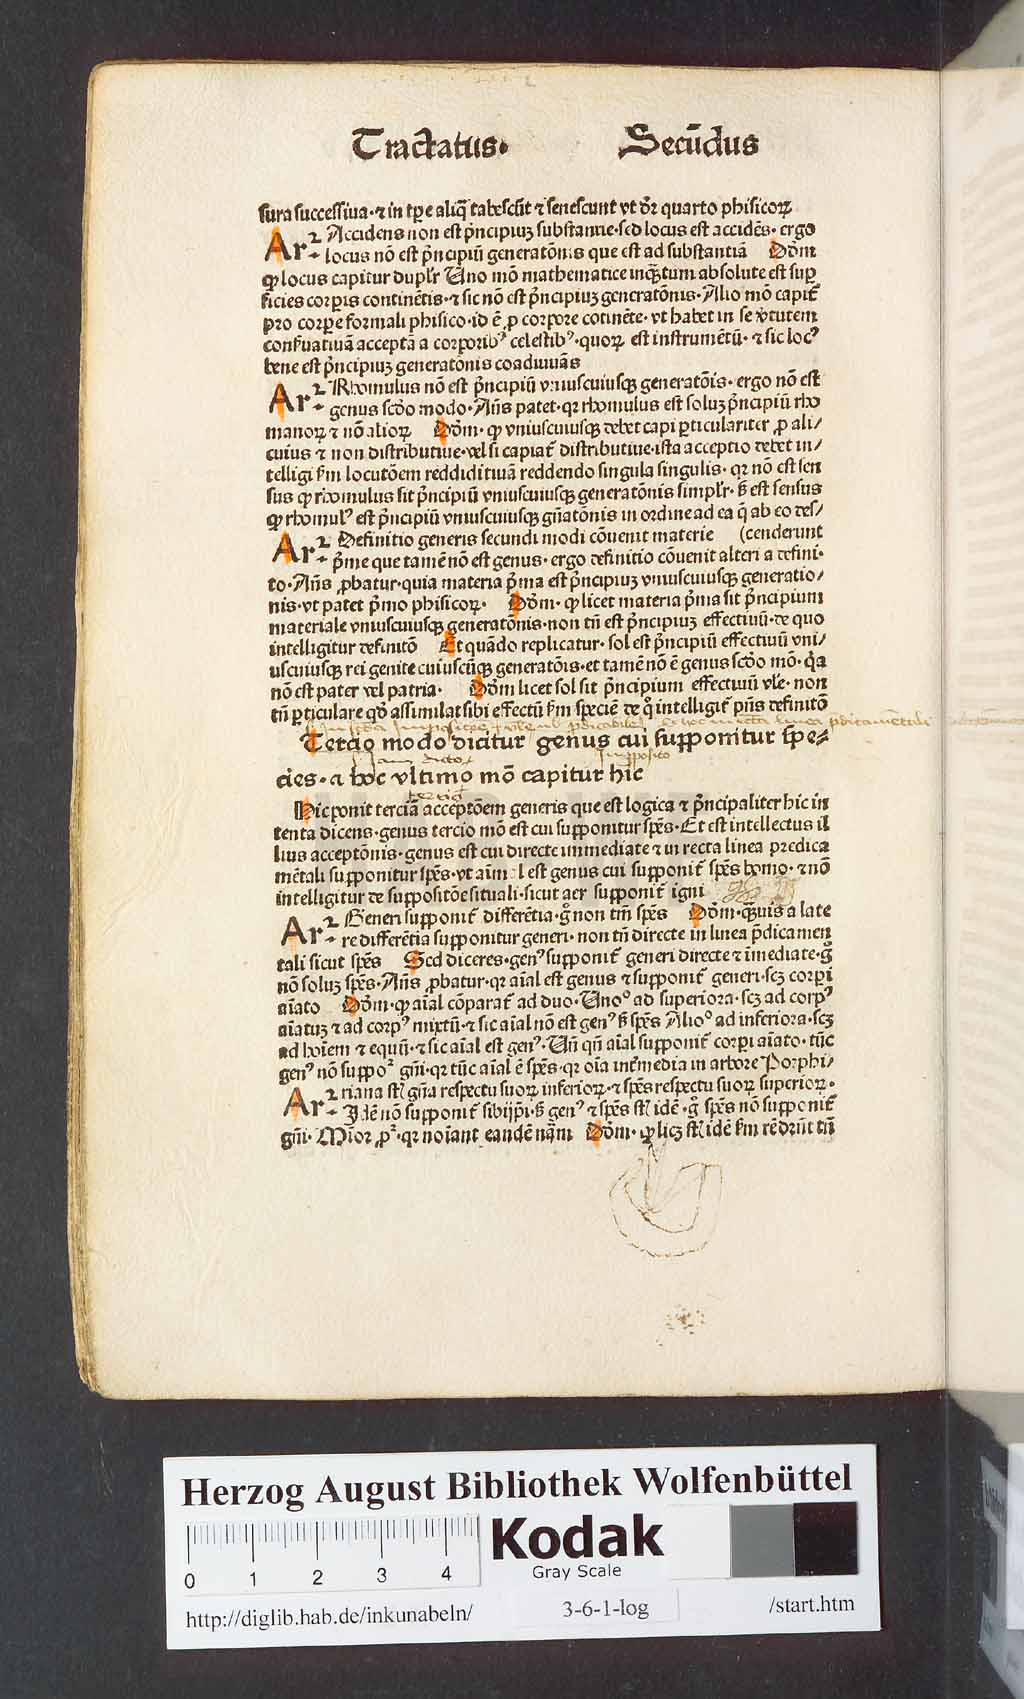 Tractatus. Secūdus
sura successiua·⁊ in tp̄e aliq̄ tabescūt ⁊ senescunt vt dr̄ quarto phisicoꝝ
Arꝛ. Accidens non est p̄ncipiuꝫ substantie·sed locus est accidēs· ergo
locus nō est p̄ncipiū generatōnis que est ad substantiā Dōm
ꝙ locus capitur duplr̄ Uno mō mathematice inqꝫtum absolute est suꝑ
ficies corꝑis continētis·⁊ sic nō est p̄ncipiuꝫ generatōnis·Alio mō capit᷑
pro corꝑe formali phisico·id ē ꝓ corpore cōtinēte· vt habet in se v̓tutem
conẜuatiuā acceptā a corporibꝰ celestibꝰ·quoꝝ est instrumētū· ⁊ sic locꝰ
bene est p̄ncipiuꝫ generatōnis coadiuuās
Arꝛ. Rhomulus nō est p̄ncipiū vniuscuiusqꝫ generatōis· ergo nō est
genus scd̄o modo·Añs patet·qꝛ rhomulus est soluꝫ p̄ncipiū rho
manoꝝ ⁊ nō alioꝝ Dōm· ꝙ vniuscuiusqꝫ debet capi ꝑticulariter ꝓ ali/
cuius ⁊ non distributiue·vel si capiat᷑ distributiue·ista acceptio debet in/
telligi ẜm locutōem reddiditiuā reddendo singula singulis· qꝛ nō est sen
sus ꝙ rhomulus sit p̄ncipiū vniuscuiusqꝫ generatōnis simplr̄· ẜ est sensus
ꝙ rhomulꝰ est p̄ncipiū vniuscuiusqꝫ gn̄atōnis in ordine ad ea q̄ ab eo des/
Arꝛ. Definitio generis secundi modi cōuenit materie (cenderunt
p̄me que tamē nō est genus· ergo definitio cōuenit alteri a defini·
to·Añs ꝓbatur·quia materia p̄ma est p̄ncipiuꝫ vniuscuiusqꝫ generatio/
nis·vt patet p̄mo phisicoꝝ· Dōm· ꝙ licet materia p̄ma sit p̄ncipium
materiale vniuscuiusqꝫ generatōnis·non tn̄ est p̄ncipiuꝫ effectiuū·de quo
intelligitur definitō Et quādo replicatur· sol est p̄ncipiū effectiuū vni/
uscuiusqꝫ rei genite cuiuscūqꝫ generatōis·et tamē nō ē genus scd̄o mō· q̄a
nō est pater vel patria· Dōm licet sol sit p̄ncipium effectiuū vl̄e· non
tn̄ ꝑticulare qd̓ assimilat sibi effectū ẜm speciē de q̄ intelligit᷑ p̄ns definitō
Tercio modo dicitur genus cui supponitur spe⸗
cies·a hoc vltimo mō capitur hic
Hic ponit terciā acceptōem generis que est logica ⁊ p̄ncipaliter hic in
tenta dicens·genus tercio mō est cui supponitur spēs·Et est intellectus il
lius acceptōnis·genus est cui directe immediate ⁊ in recta linea predica
mētali supponitur spēs·vt aīm l est genus cui supponit᷑ spēs homo·⁊ nō
intelligitur de suppositōe situali·sicut aer supponit᷑ igni
Arꝛ. Generi supponit᷑ differētia·gͦ non tm̄ spēs Dōm·qꝫuis a late
re differētia supponitur generi· non tn̄ directe in linea p̄dicamen
tali sicut spēs Sed diceres·genꝰ supponit᷑ generi directe ⁊ īmediate·gͦ
nō soluꝫ spēs·Añs ꝓbatur·qꝛ aīal est genus ⁊ supponit᷑ generi·scꝫ corpi
aīato Dōm·ꝙ aīal cōparat᷑ ad duo·Unoº ad superiora·scꝫ ad corpꝰ
aīatuꝫ ⁊ ad corpꝰ mixtū·⁊ sic aīal nō est genꝰ ẜ spēs Alioº ad inferiora·scꝫ
ad hoīem ⁊ equū·⁊ sic aīal est genꝰ·Un̄ qn̄ aīal supponit᷑ corpi aīato·tūc
genꝰ nō suppoꝛ gn̄i·qꝛ tūc aīal ē spēs·qꝛ oīa intͬmedia in arbore Porphi/
Arꝛ. riana st̄ gn̄a respectu suoꝝ inferioꝝ·⁊ spēs respectu suoꝝ superioꝝ·
Idē nō supponit᷑ sibijpi·ẜ genꝰ ⁊ spēs st̄ idē·gͦ spēs nō supponit᷑
gn̄i·Mīor ꝓꝛ·qꝛ noīant eandē nām Dōm· ꝙ licꝫ st̄ idē ẜm rē dr̄nt tn̄
Herzog August Bibliothek Wolfenbüttel
Kodak
Gray Scale
0 1 2 3 4
http://diglib.hab.de/inkunabeln/ 3-6-1-log /start.htm